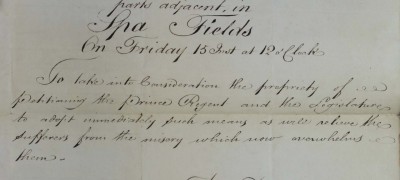 parts adjacent, in
Spa Fields
On Friday 15 Inst at 12 o'Clock
To take into Consideration the propriety of
petitioning the Prince Regent and the Legislature
to adopt immediately such means as will relieve the
Sufferers from the misery which now overwhelms
them -